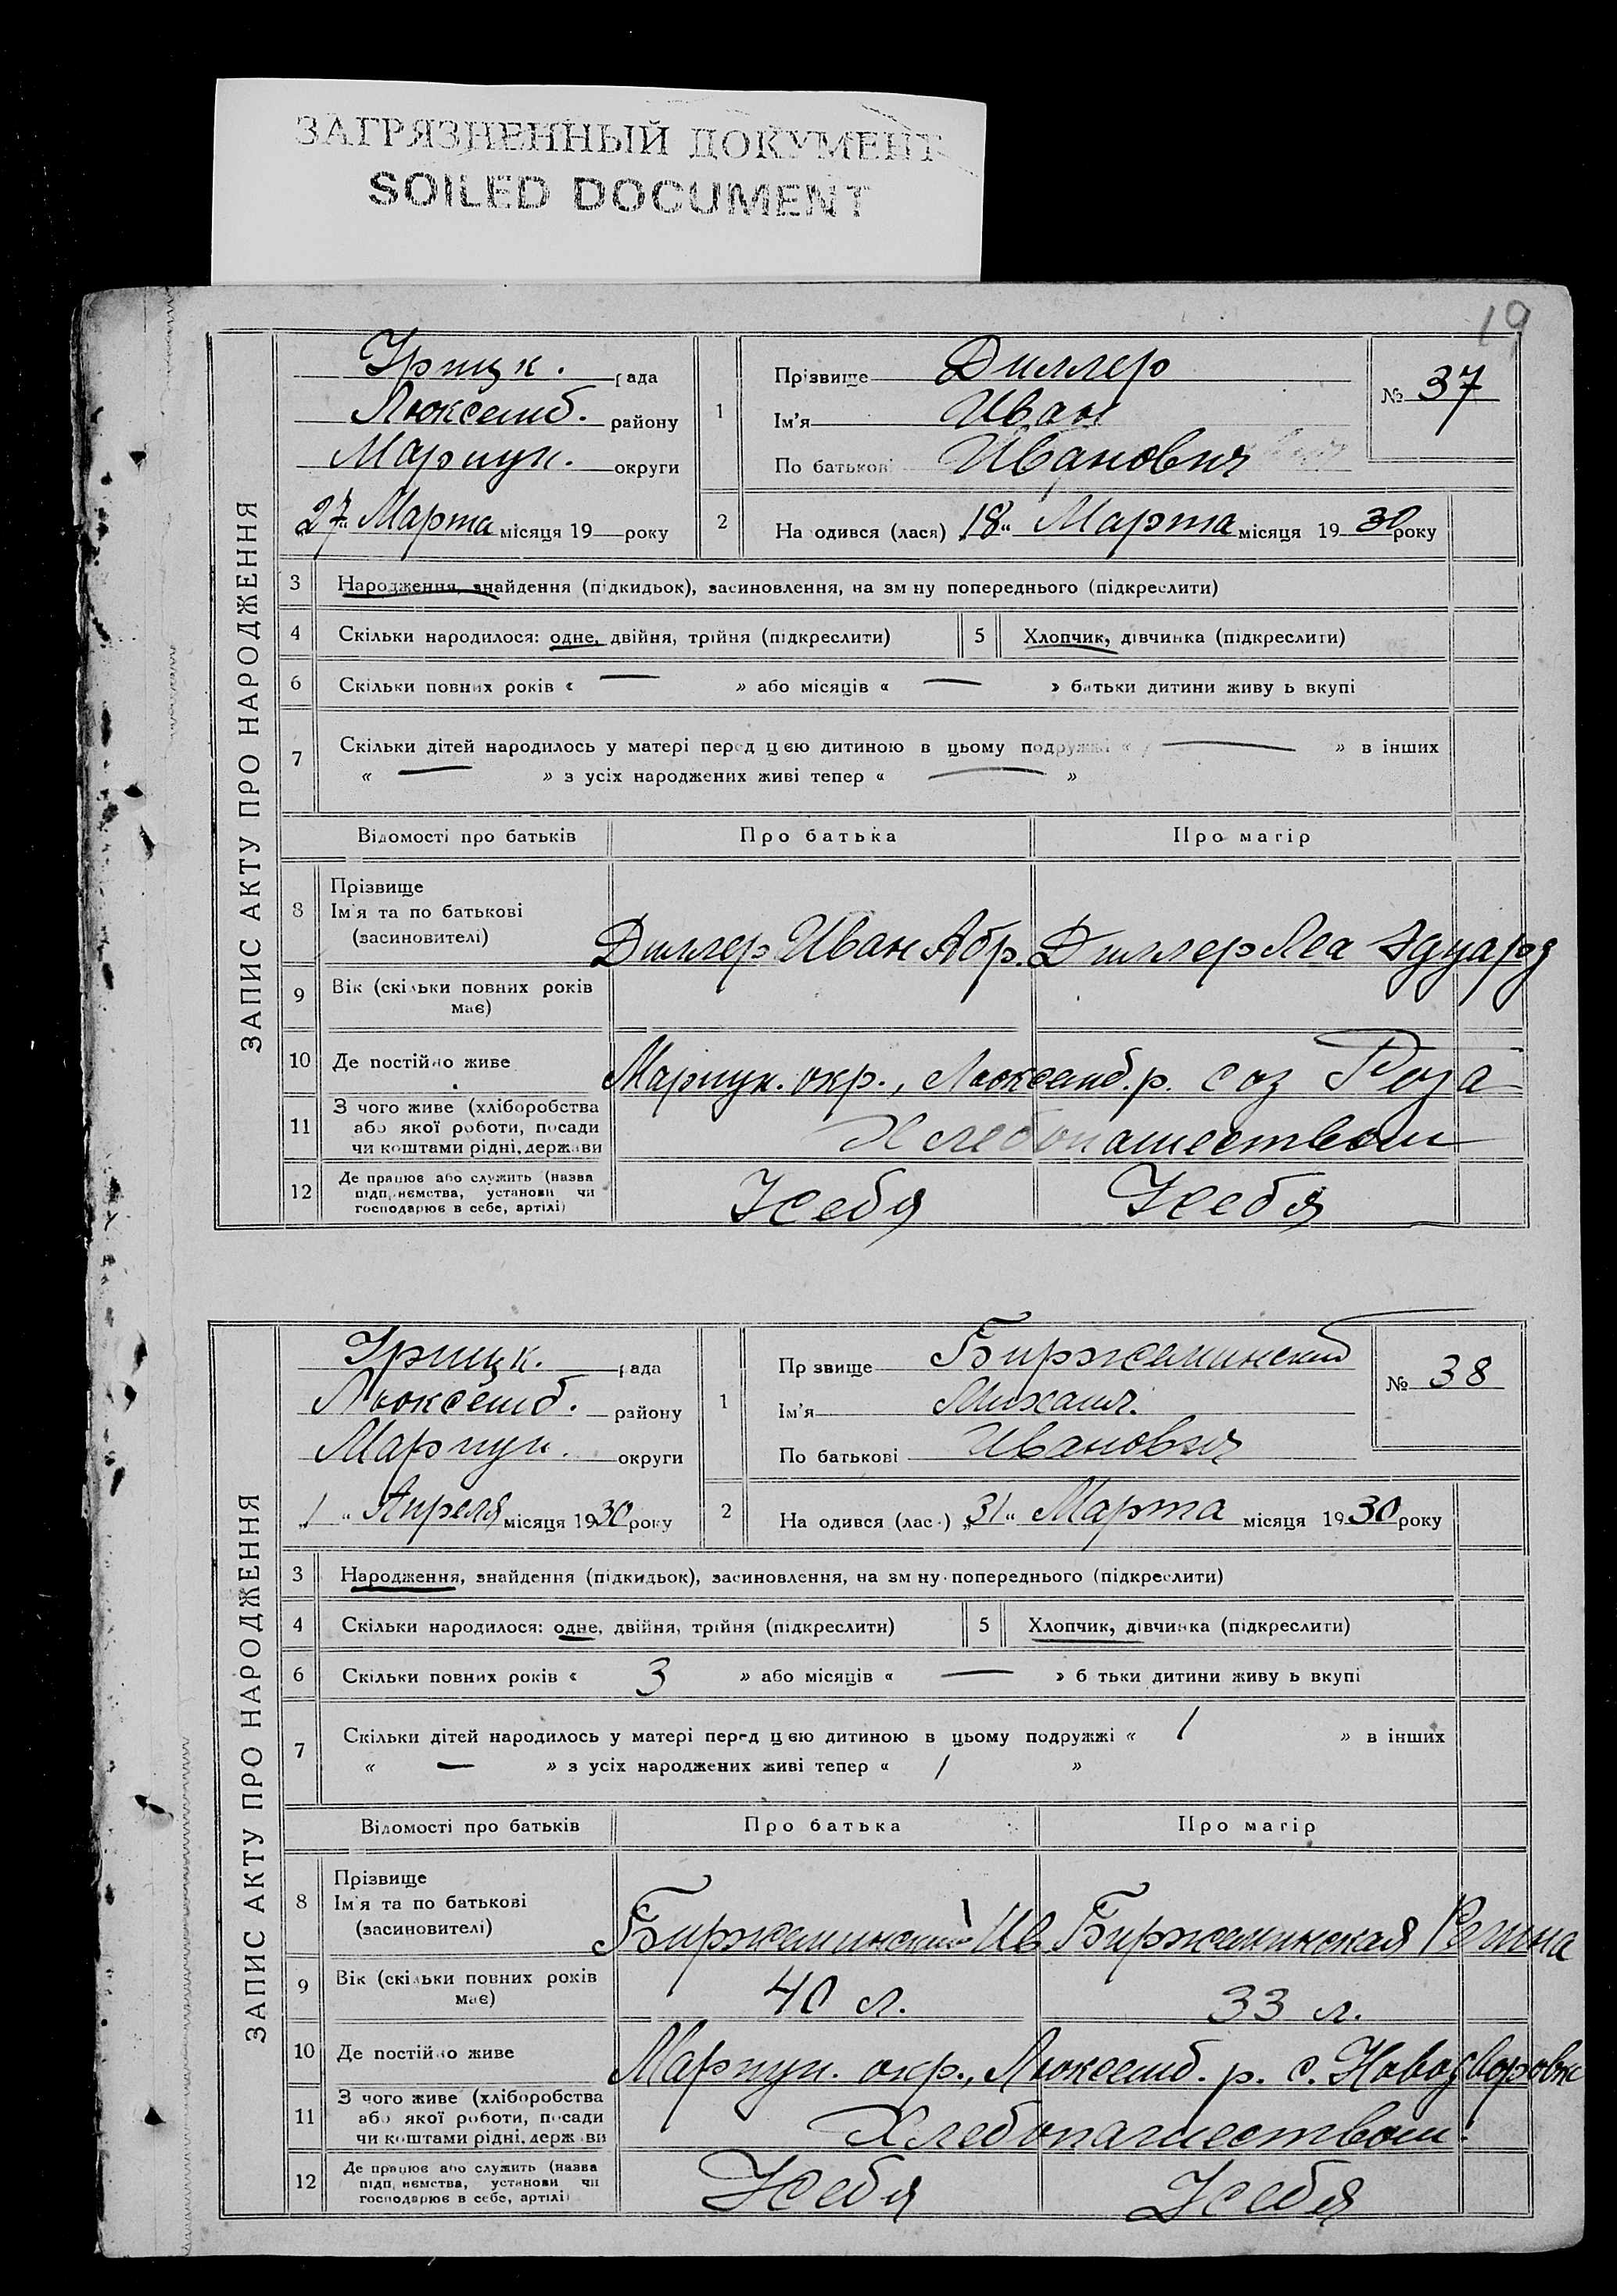 ЗАГРЯЗНЕННЫЙ ДОКУМЕНТ
SOILED DOCUMENT
19
ЗАПИС АКТУ ПРО НАРОДЖЕННЯ
Урицк. рада
Люксемб. району
Мариуп. округи
„27“ Марта місяця 19 року
1
Прізвище Диллер
Ім'я Иван
По батькові Иванович
№ 37
2
На одився (лася) „18“ Марта місяця 1930 року
3 Народження, знайдення (підкидьок), засиновлення, на зм ну попереднього (підкреслити)
4 Скільки народилося: одне, двійня, трійня (підкреслити) 5 Хлопчик, дівчинка (підкреслити)
6 Скільки повних років « — » або місяців « — » батьки дитини живу ь вкупі
7 Скільки дітей народилось у матері перед цею дитиною в цьому подружжі « — » в інших
« — » з усіх народжених живі тепер « — »
Відомості про батьків Про батька Про матір
8 Прізвище
Ім'я та по батькові
(засиновителі)
Диллер Иван Абр. Диллер Леа Эдуард
9 Вік (скільки повних років
має)
10 Де постійно живе Мариуп. окр., Люксемб. р. соз Роза
11 З чого живе (хліборобства
або якої роботи, посади
чи коштами рідні, держави
Хлебопашеством
12 Де працює або служить (назва
підп, иємства, установи чи
господарює в себе, артілі)
У себя У себя
ЗАПИС АКТУ ПРО НАРОДЖЕННЯ
Урицк. рада
Люксемб. району
Мариуп. округи
„1“ Апреля місяця 1930 року
1
Пр звище Биржаминский
Ім'я Михаил.
По батькові Иванович
№ 38
2
На одився (лас ) „31“ Марта місяця 1930 року
3 Народження, знайдення (підкидьок), засиновлення, на зм ну попереднього (підкреслити)
4 Скільки народилося: одне, двійня, трійня (підкреслити) 5 Хлопчик, дівчинка (підкреслити)
6 Скільки повних років « 3 » або місяців « — » б тьки дитини живу ь вкупі
7 Скільки дітей народилось у матері перед цею дитиною в цьому подружжі « 1 » в інших
« — » з усіх народжених живі тепер « 1 »
Відомості про батьків Про батька Про матір
8 Прізвище
Ім'я та по батькові
(засиновителі)
Биржаминский Ив Биржаминская
9 Вік (скільки повних років
має)
40 л. 33 л.
10 Де постійно живе Мариуп. окр., Люксемб. р. с. Новодворовк
11 З чого живе (хліборобства
або якої роботи, посади
чи коштами рідні, держ ви
Хлебопашеством.
12 Де працює або служить (назва
підп, иємства, установи чи
господарює в себе, артілі)
У себя У себя